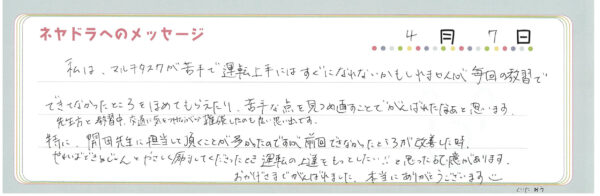 ネヤドラへのメッセージ
4 月 7 日
私は、マルチタスクが苦手で運転上手にはすぐになれないかもしれませんが毎回の教習で
できてなかったところをほめてもらえたり、苦手な点を見つめ直すことでがんばれたなぁと思います。
先生方と教習中、交通に気をつけながら雑談したのも良い思い出です。
特に、開田先生に担当して頂くことが多かったのですが前回できなかったところが改善した時、
やればできるじゃんとやさしく励ましてくださったとき運転の上達をもっとしたい!!と思った記憶があります。
おかげさまでがんばれました。本当にありがとうございます